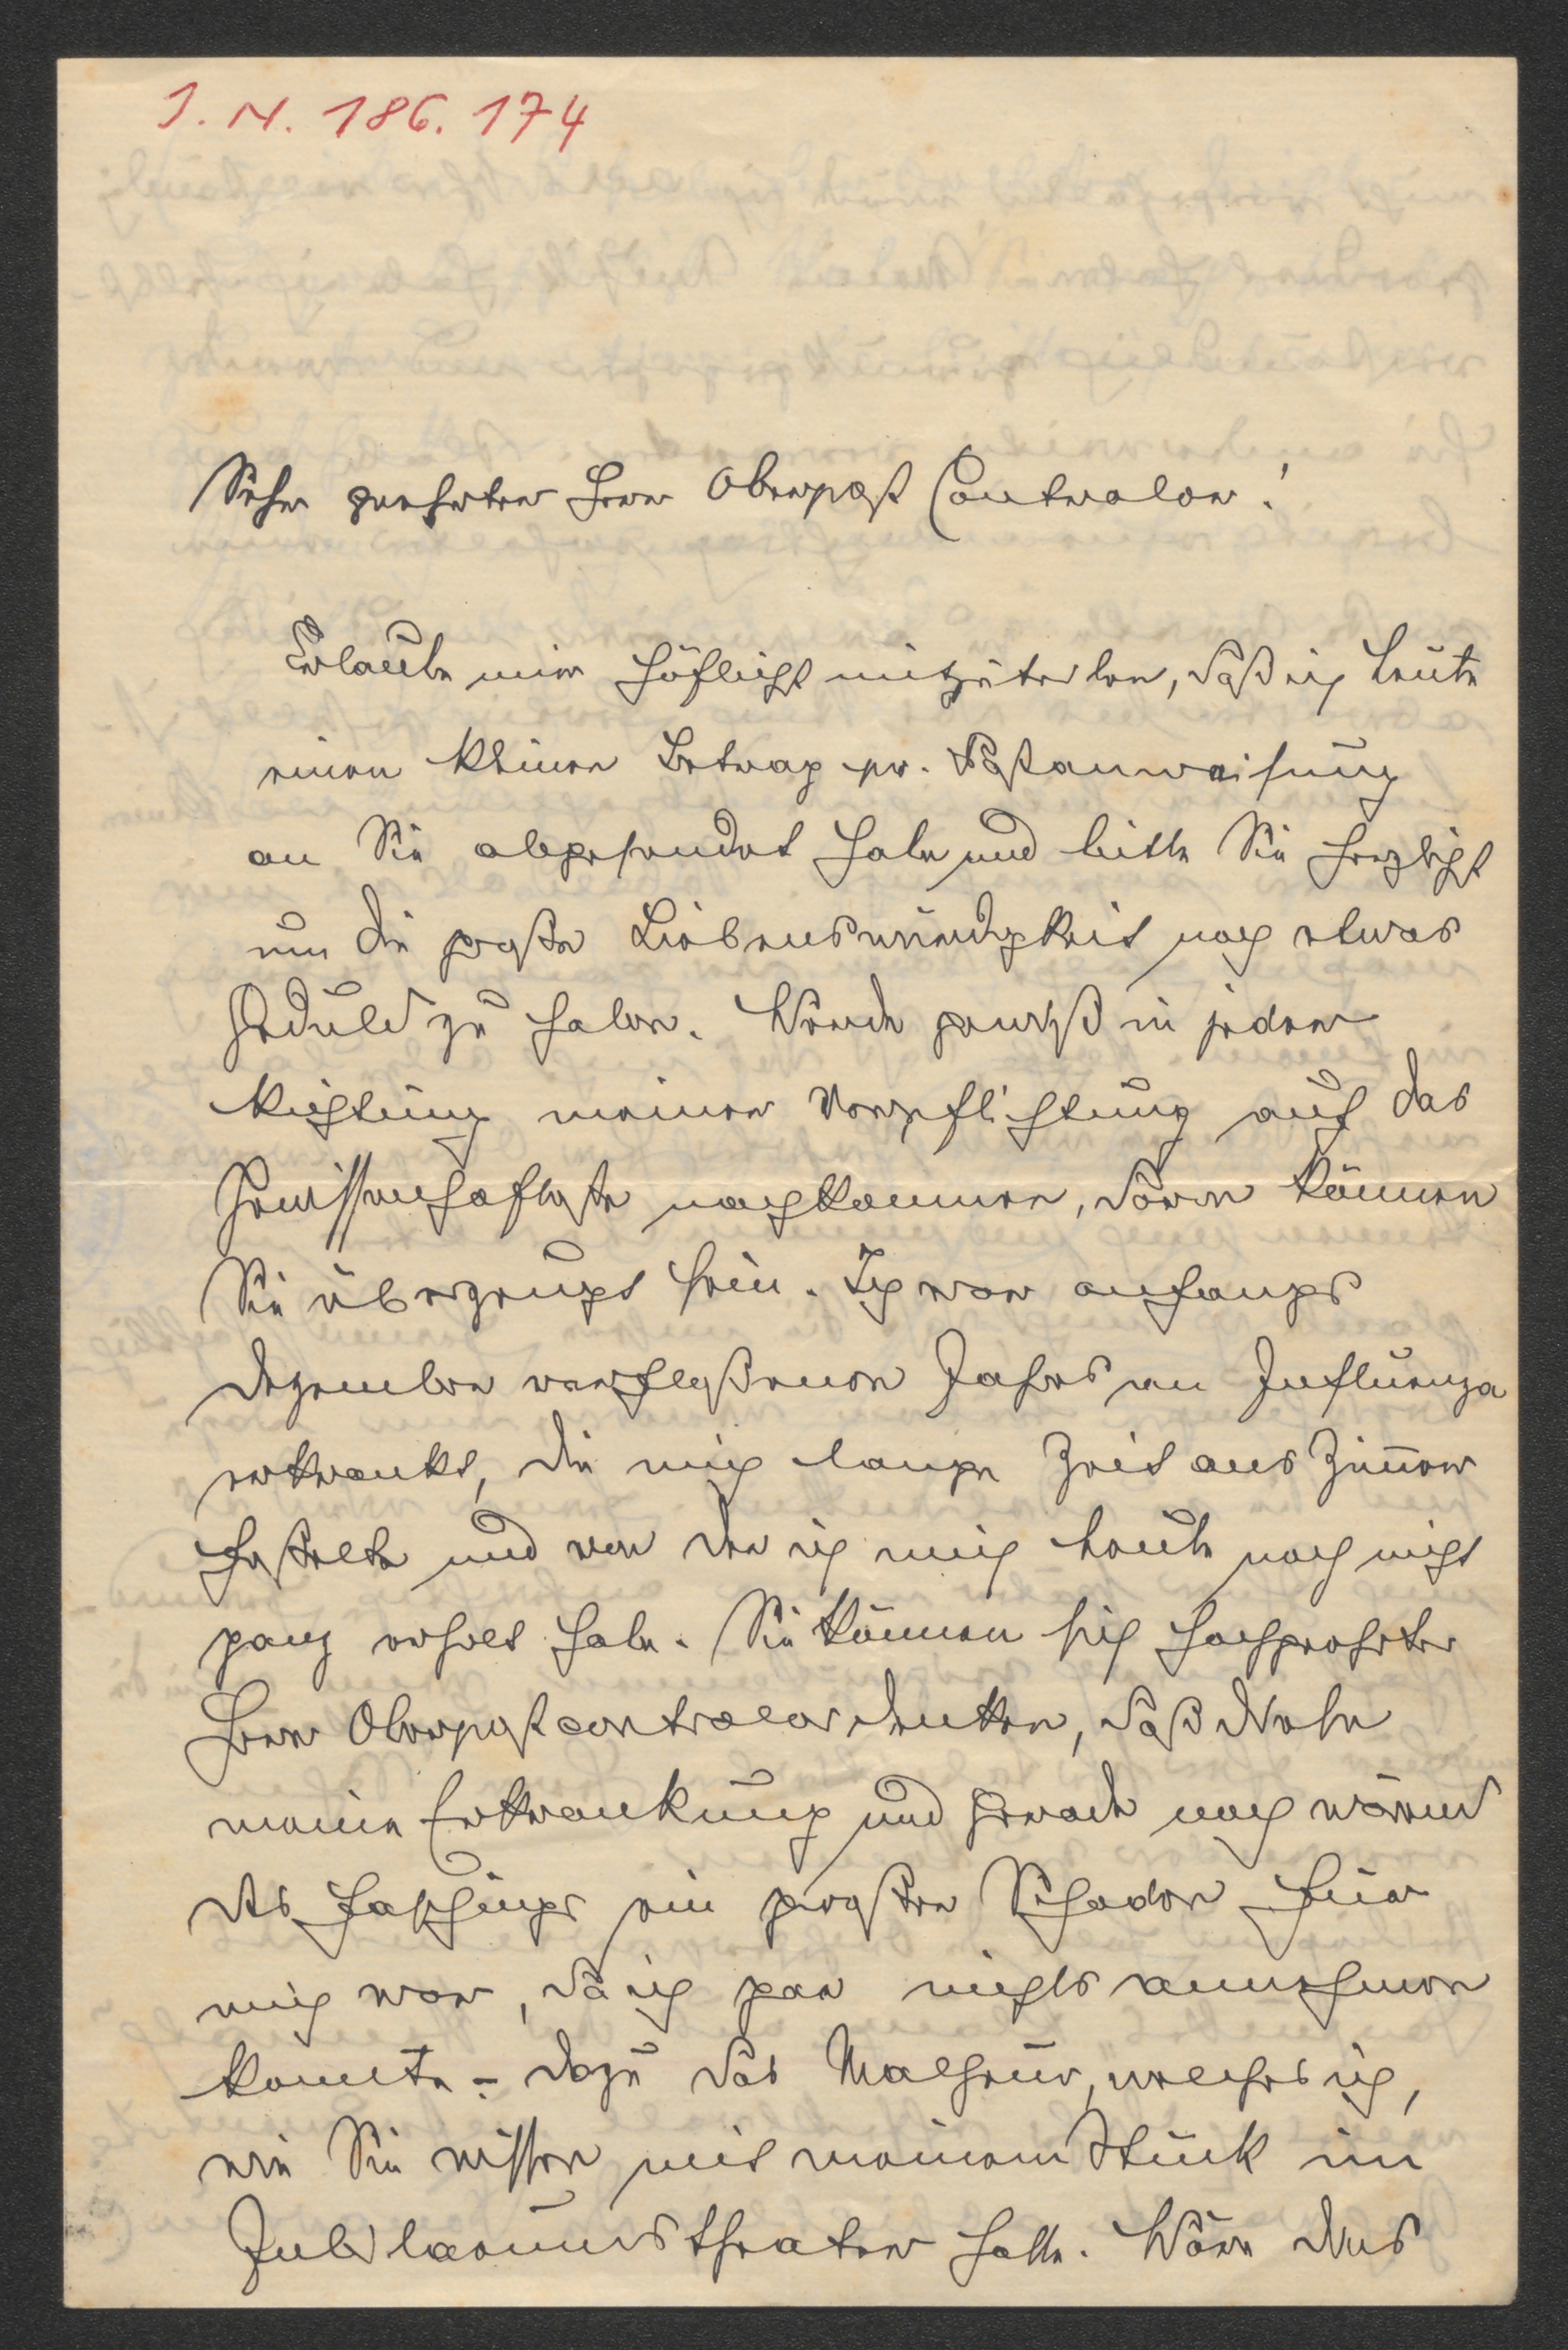 I. N. 186.174
Sehr geehrter Herr Oberpost Controlor!
Erlaube mir höflichst mitzuteilen, daß ich heute
einen kleinen Betrag pr. Postanweisung
an Sie abgesendet habe und bitte Sie herzlichst
um die große Liebenswürdigkeit noch etwas
Geduld zu haben. Werde gewiß in jeder
Richtung meiner Verpflichtung auf das
Gewissenhafteste nachkommen, davon können
Sie überzeugt sein. Ich war anfangs
Dezember verfloßenen Jahres an Influenza
erkrankt, die mich lange Zeit ans Zimmer
fesselte und von der ich mich heute noch nicht
ganz erholt habe. Sie können sich hochgeehrter
Herr Oberpostcontrolor denken, daß diese
meine Erkrankung und gerade noch wärend
des Faschings ein großer Schaden für
mich war, da ich gar nichts annehmen
konnte – dazu das Malheur, welches ich,
wie Sie wissen mit meinem Stück im
Jubilaeumstheater hatte. Wäre dies